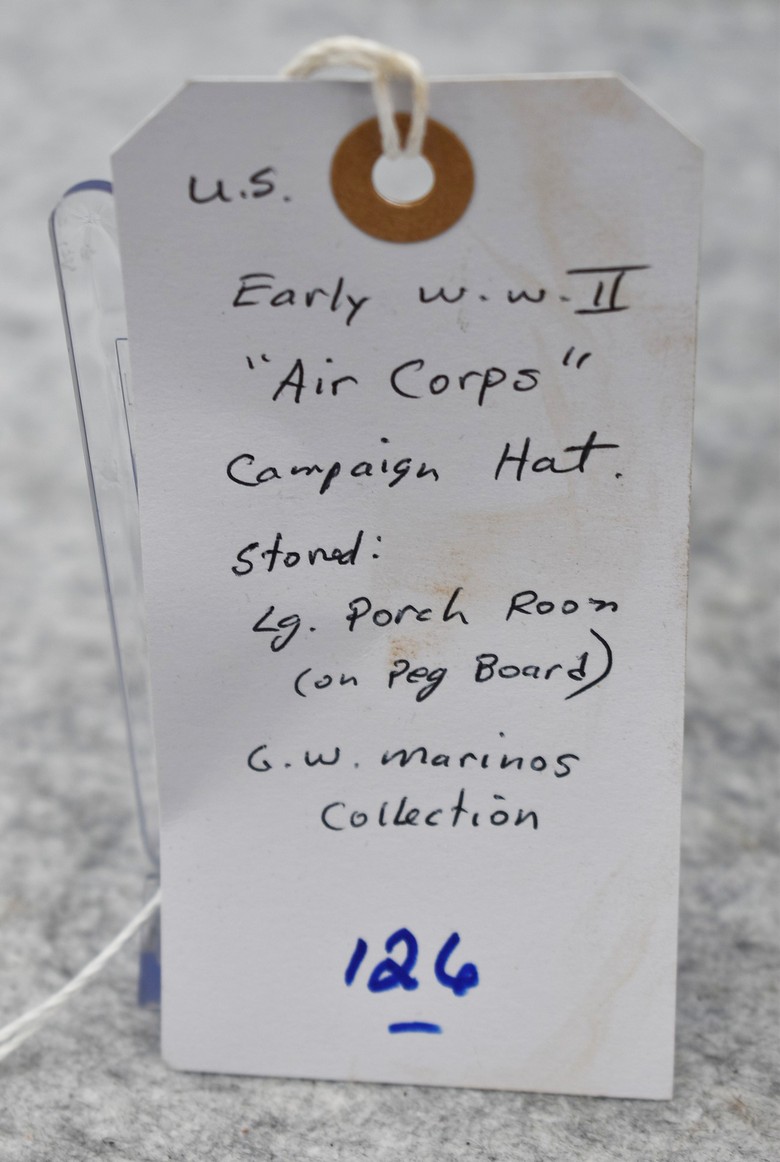 U.S.
Early W.W.II
"Air Corps"
Campaign Hat.
Stored:
Lg. Porch Room
(on Peg Board)
G.W. Marinos
Collection
126